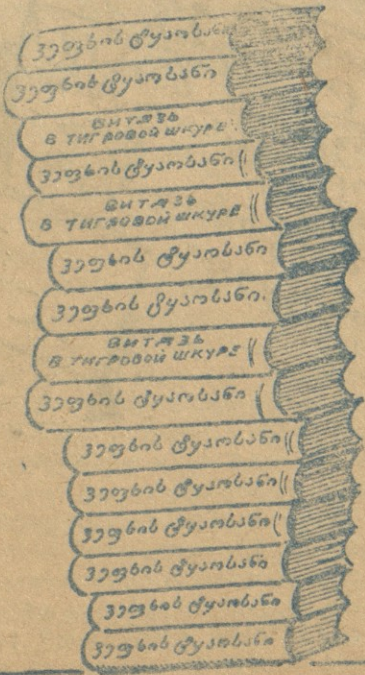 ვეფხის ტყაოსანი
ვეფხის ტყაოსანი
ВИТЯЗЬ
В ТИГРОВОЙ ШКУРЕ
ვეფხის ტყაოსანი
ВИТЯЗЬ
В ТИГРОВОЙ ШКУРЕ
ვეფხის ტყაოსანი
ვეფხის ტყაოსანი
ВИТЯЗЬ
В ТИГРОВОЙ ШКУРЕ
ვეფხის ტყაოსანი
ვეფხის ტყაოსანი
ვეფხის ტყაოსანი
ვეფხის ტყაოსანი
ვეფხის ტყაოსანი
ვეფხის ტყაოსანი
ვეფხის ტყაოსანი